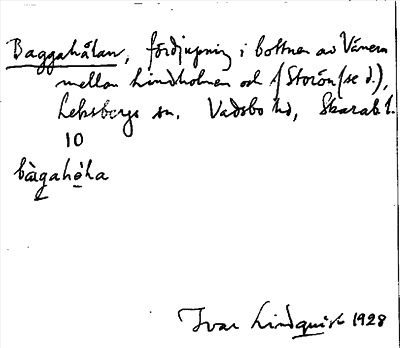 Baggahålan, fördjupning i bottnen av Vänern
mellan Lindholmen och Storön (se d.),
Leksbergs sn. Vadsbo hd, Skarab. l.
10
Ivar Lindquist 1928